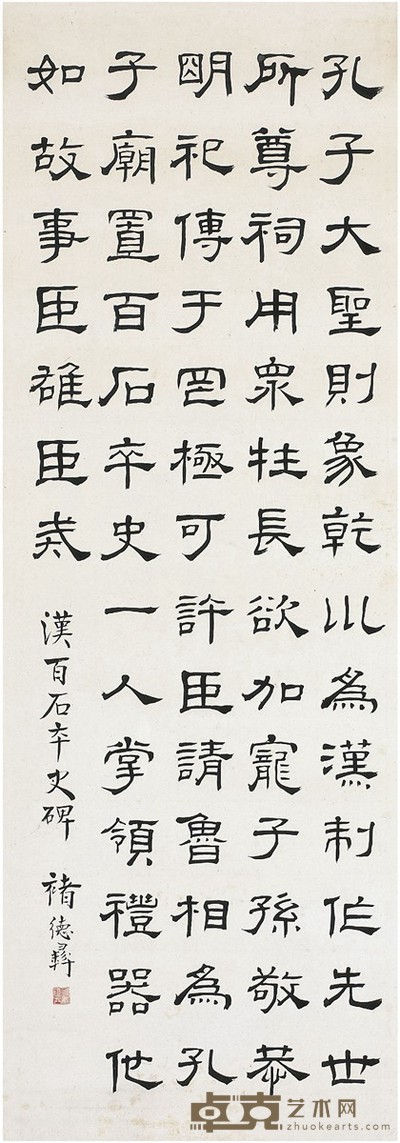 孔子大聖則象乾川為漢制作先世
所尊祠用眾牲長欲加寵子孫敬恭
朙祀傳于罔極可許臣請魯相為孔
子廟置百石卒史一人掌領禮器他
如故事臣雄臣戒
漢百石卒史碑 褚德彝
卓克艺术网
zhuokearts.com